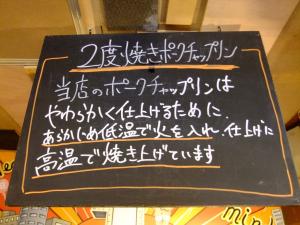 2度焼きポークチャップリン
当店のポークチャップリンは
やわらかく仕上げるために、
あらかじめ低温で火を入れ、仕上げに
高温で焼き上げています